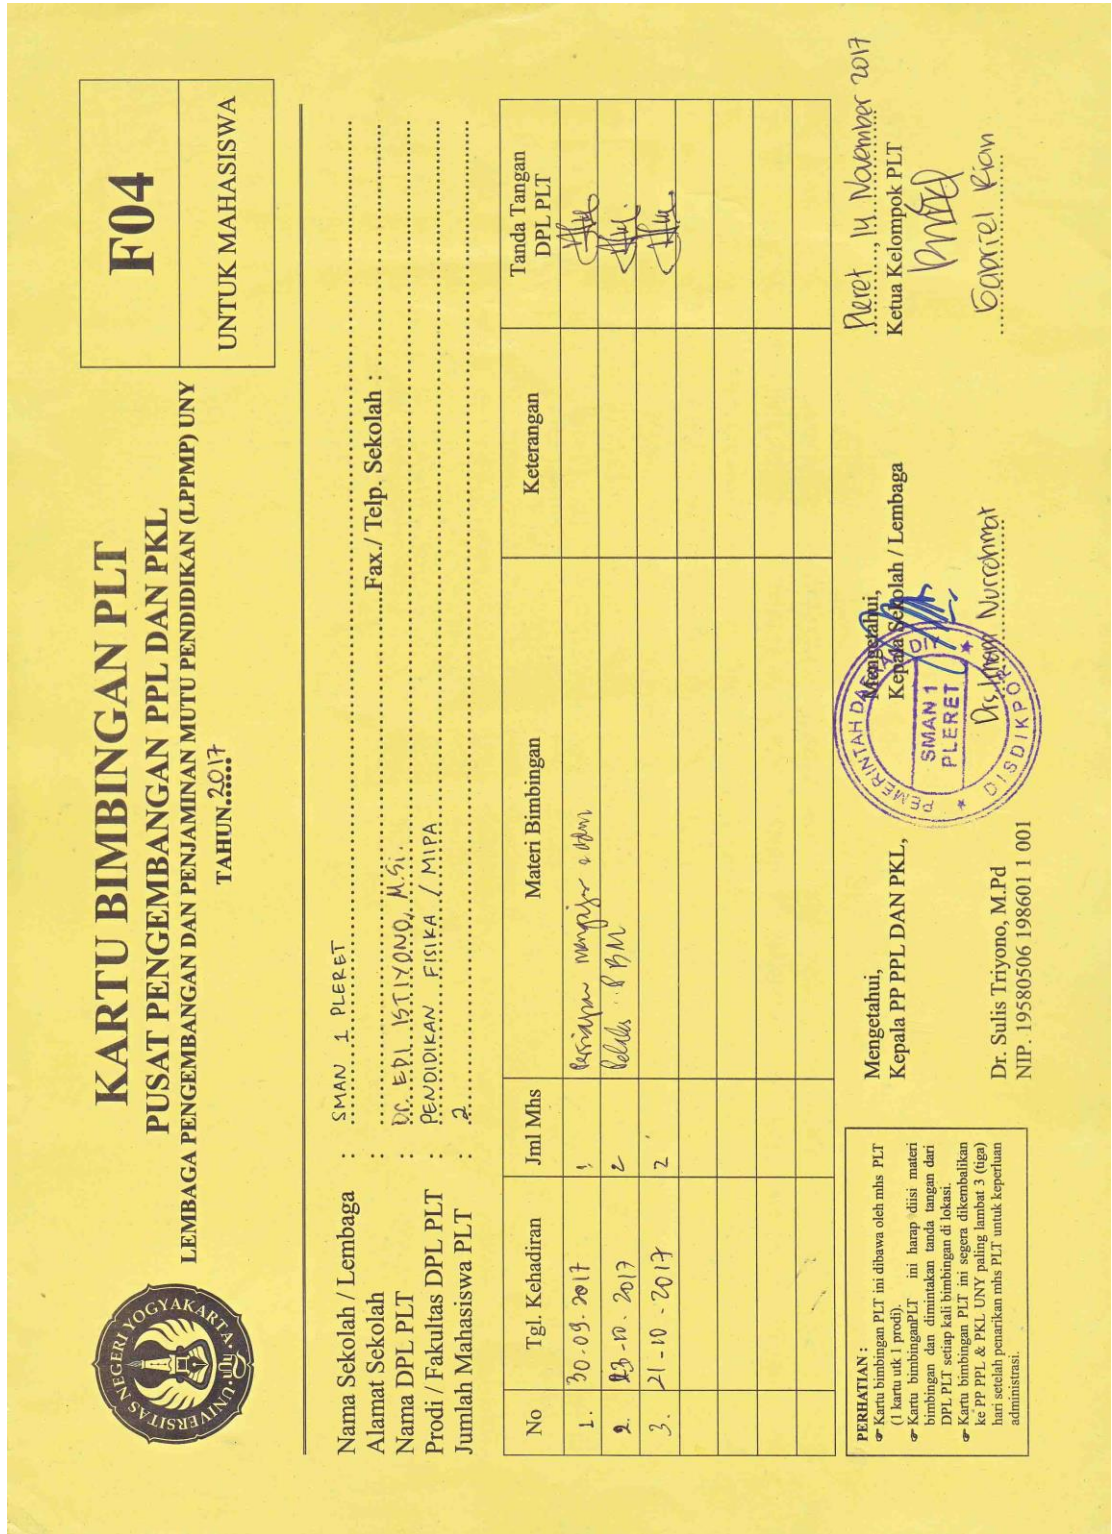 UNIVERSITAS NEGERI YOGYAKARTA
KARTU BIMBINGAN PLT
PUSAT PENGEMBANGAN PPL DAN PKL
LEMBAGA PENGEMBANGAN DAN PENJAMINAN MUTU PENDIDIKAN (LPPMP) UNY
TAHUN 2017
F04
UNTUK MAHASISWA
Nama Sekolah / Lembaga : SMAN 1 PLERET
Alamat Sekolah : Fax./ Telp. Sekolah :
Nama DPL PLT : Dr. EDI ISTIYONO, M.Si.
Prodi / Fakultas DPL PLT : PENDIDIKAN FISIKA / MIPA
Jumlah Mahasiswa PLT : 2
No Tgl. Kehadiran Jml Mhs Materi Bimbingan Keterangan Tanda Tangan DPL PLT
1. 30-09-2017 Persiapan mengajar
2. 23-10-2017 2 PBM
3. 21-10-2017 2
PERHATIAN :
☞ Kartu bimbingan PLT ini dibawa oleh mhs PLT
(1 kartu utk 1 prodi).
☞ Kartu bimbinganPLT ini harap diisi materi
bimbingan dan dimintakan tanda tangan dari
DPL PLT setiap kali bimbingan di lokasi.
☞ Kartu bimbingan PLT ini segera dikembalikan
ke PP PPL & PKL UNY paling lambat 3 (tiga)
hari setelah penarikan mhs PLT untuk keperluan
administrasi.
Mengetahui,
Kepala PP PPL DAN PKL,
Dr. Sulis Triyono, M.Pd
NIP. 19580506 198601 1 001
Mengetahui,
Kepala Sekolah / Lembaga
Drs. Imam Nurrohmat
PEMERINTAH DAERAH DIY
SMAN 1
PLERET
DISDIKPOR
Pleret, 14 November 2017
Ketua Kelompok PLT
Gabriel Rian